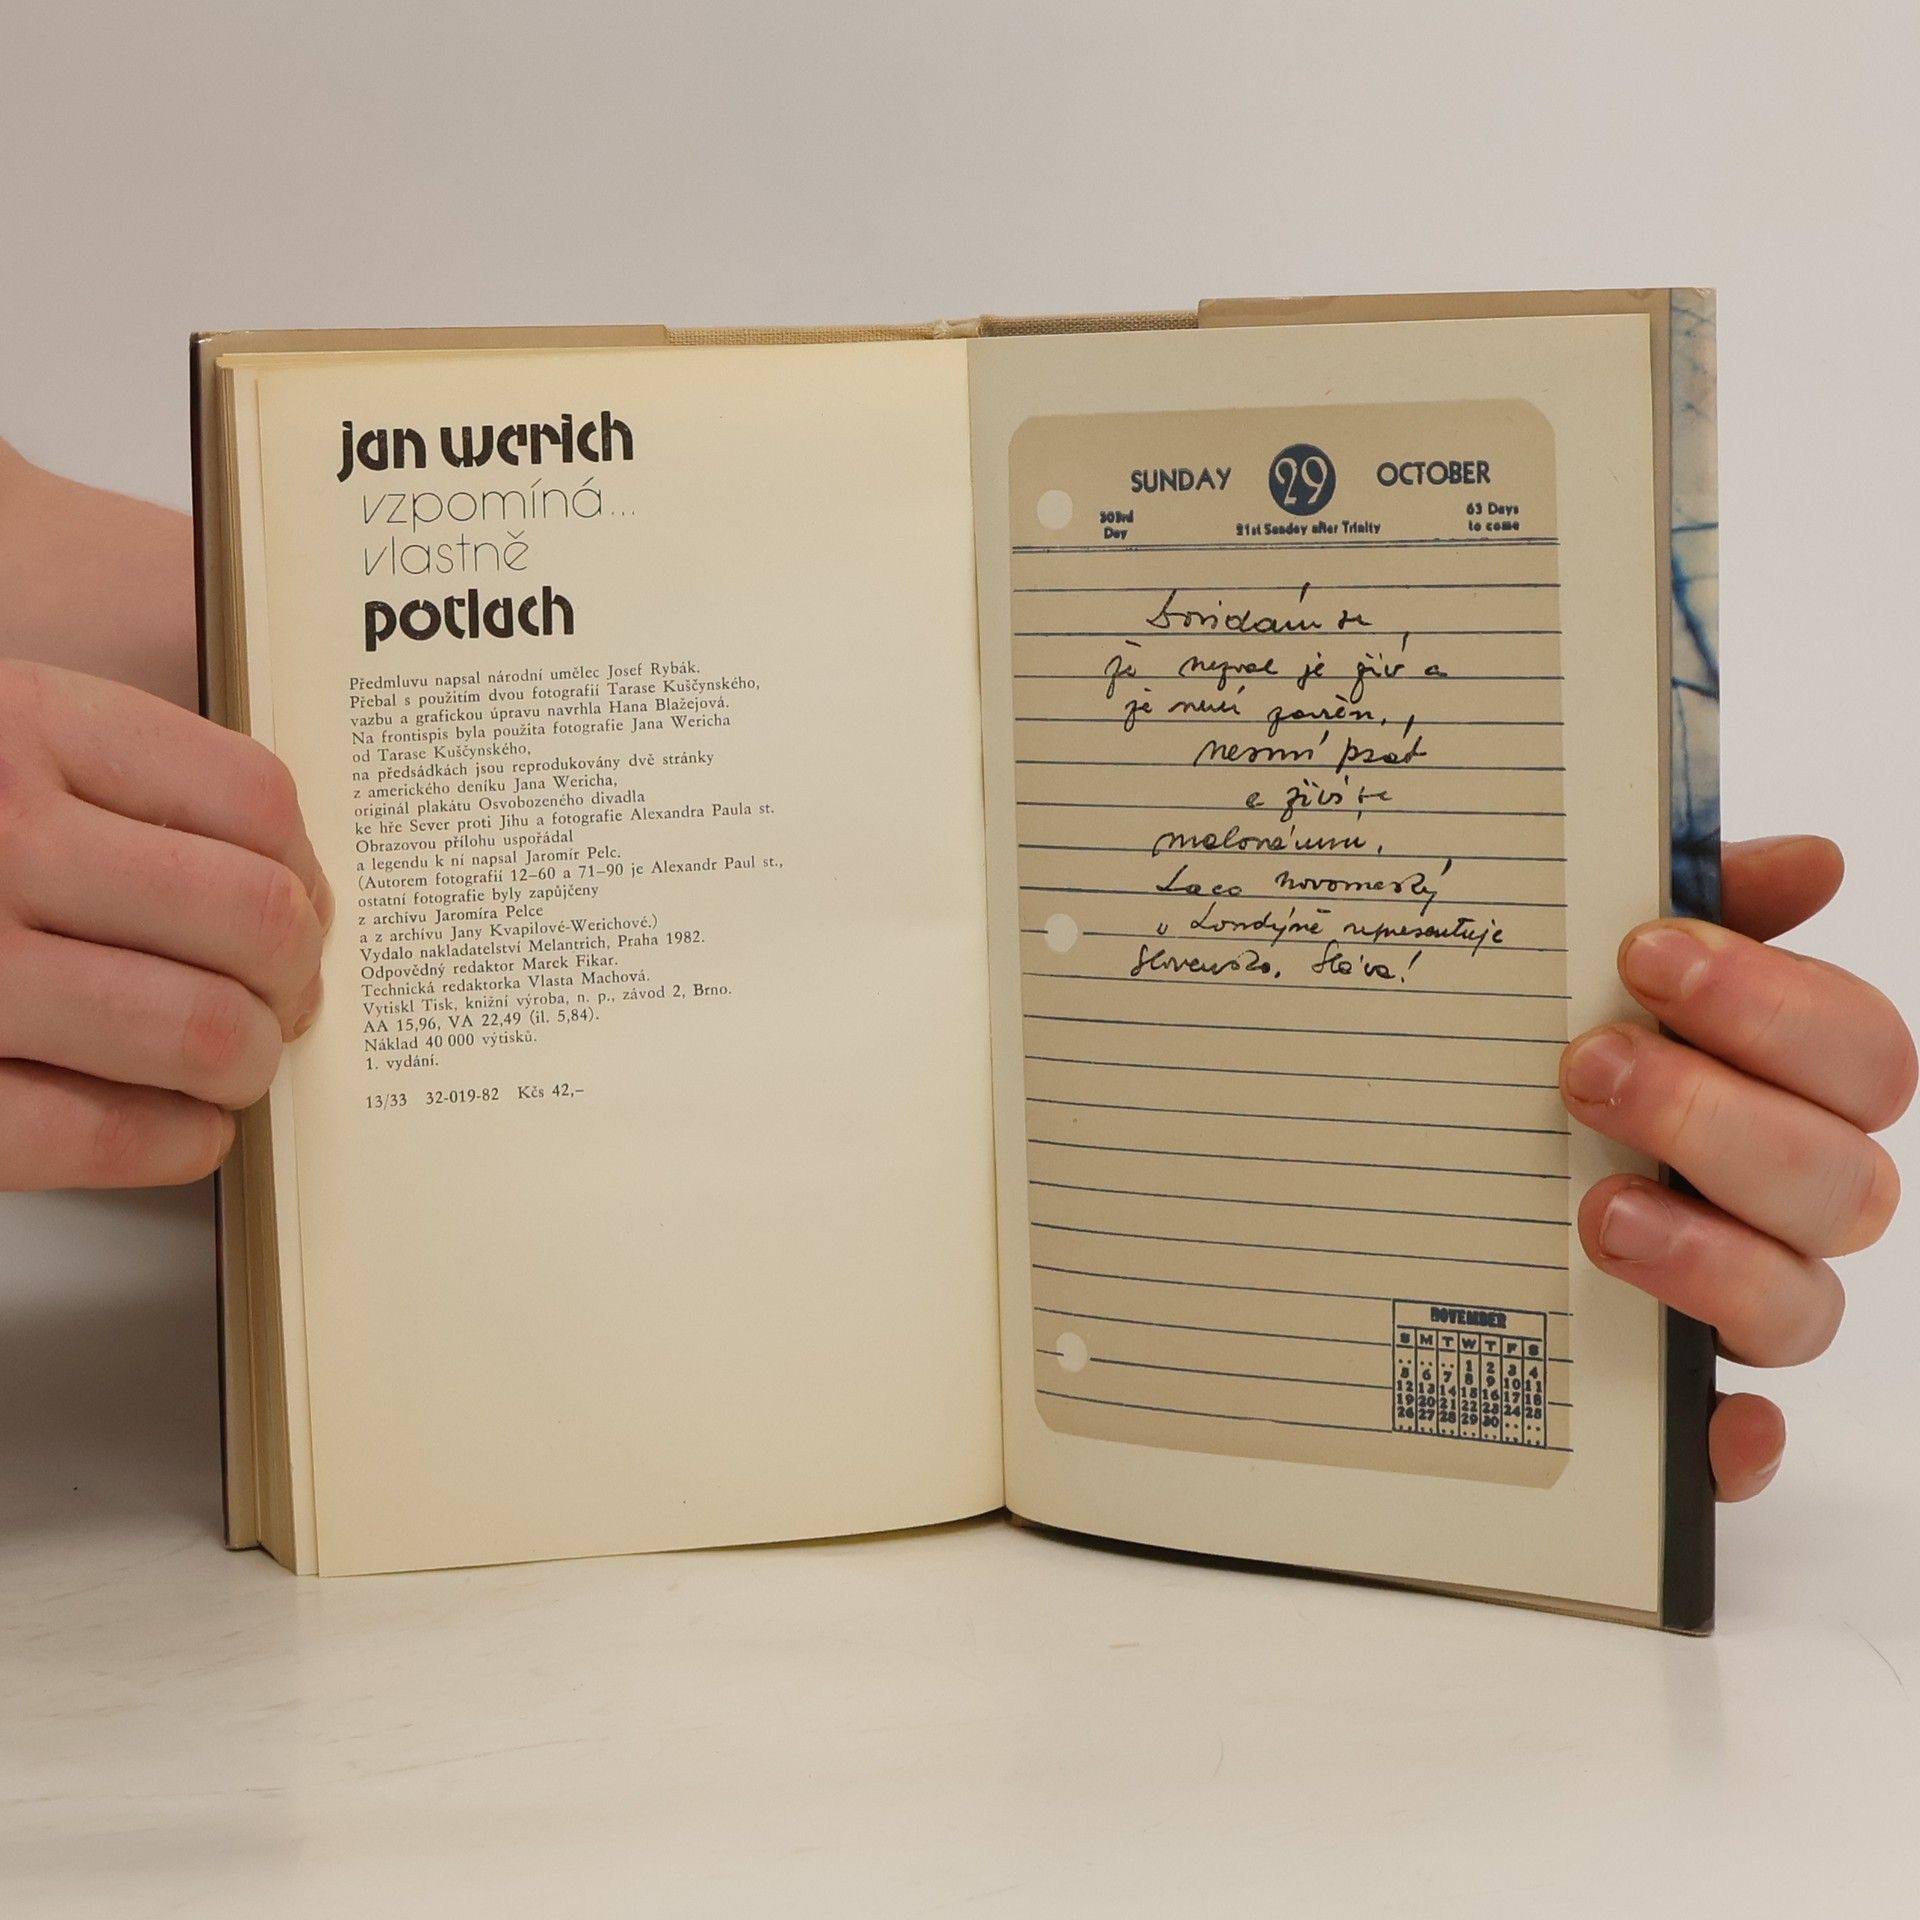 jan werich
vzpomíná...
vlastně
potlach
Předmluvu napsal národní umělec Josef Rybák.
Přebal s použitím dvou fotografií Tarase Kuščynského,
vazbu a grafickou úpravu navrhla Hana Blažejová.
Na frontispis byla použita fotografie Jana Wericha
od Tarase Kuščynského,
na předsádkách jsou reprodukovány dvě stránky
z amerického deníku Jana Wericha,
originál plakátu Osvobozeného divadla
ke hře Sever proti Jihu a fotografie Alexandra Paula st.
Obrazovou přílohu uspořádal
a legendu k ní napsal Jaromír Pelc.
(Autorem fotografií 12–60 a 71–90 je Alexandr Paul st.,
ostatní fotografie byly zapůjčeny
z archívu Jaromíra Pelce
a z archívu Jany Kvapilové-Werichové.)
Vydalo nakladatelství Melantrich, Praha 1982.
Odpovědný redaktor Marek Fikar.
Technická redaktorka Vlasta Machová.
Vytiskl Tisk, knižní výroba, n. p., závod 2, Brno.
AA 15,96, VA 22,49 (il. 5,84).
Náklad 40 000 výtisků.
1. vydání.
13/33 32-019-82 Kčs 42,–
SUNDAY 29 OCTOBER
303rd Day 21st Sunday after Trinity 63 Days to come
Dovídám se
že nezval je živ a
že není zavřen,
nesmí psát
a živí se
Laco Novomeský
v Londýně representuje
Slovensko. Sláva!
NOVEMBER
S M T W T F S
.. .. .. 1 2 3 4
5 6 7 8 9 10 11
12 13 14 15 16 17 18
19 20 21 22 23 24 25
26 27 28 29 30 .. ..